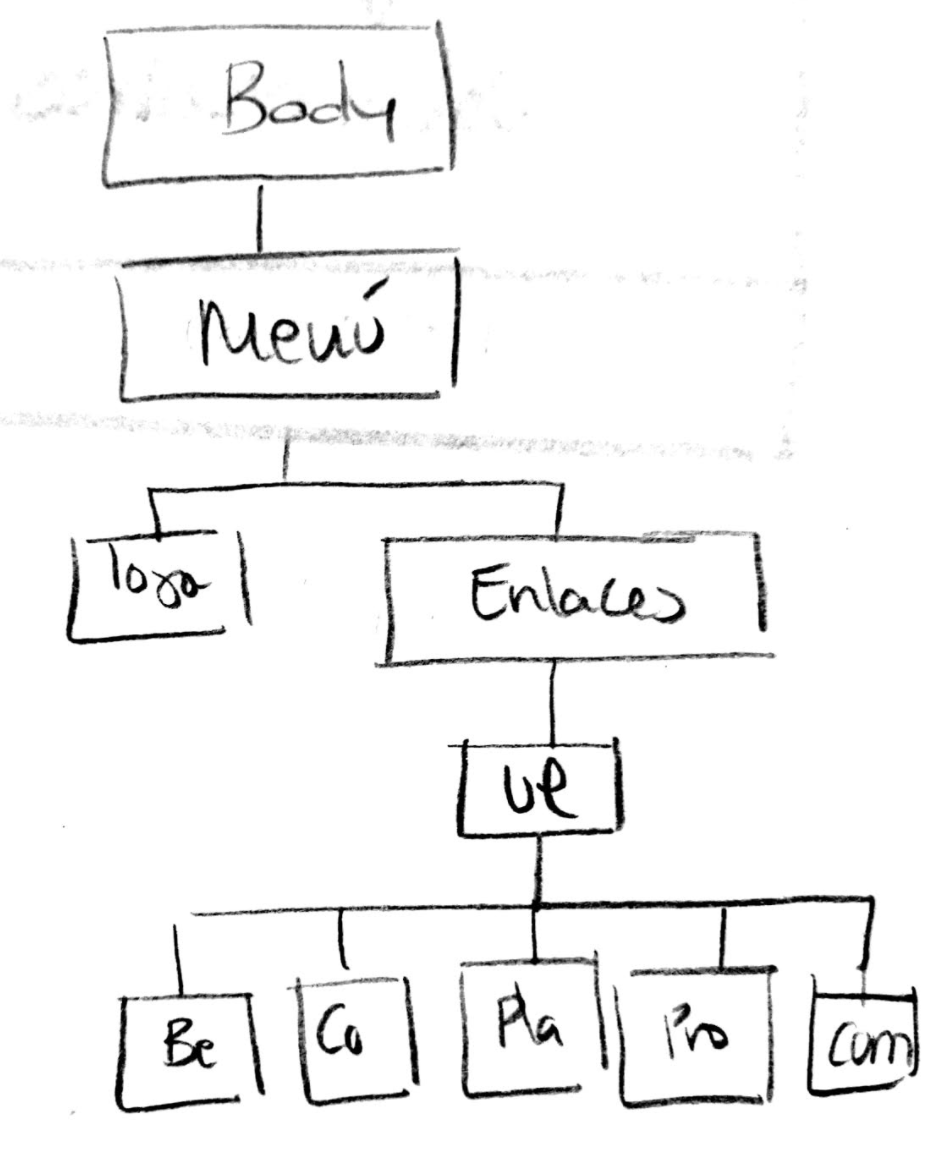 Body
Menú
logo
Enlaces
ul
Be
Co
Pla
Pro
Com